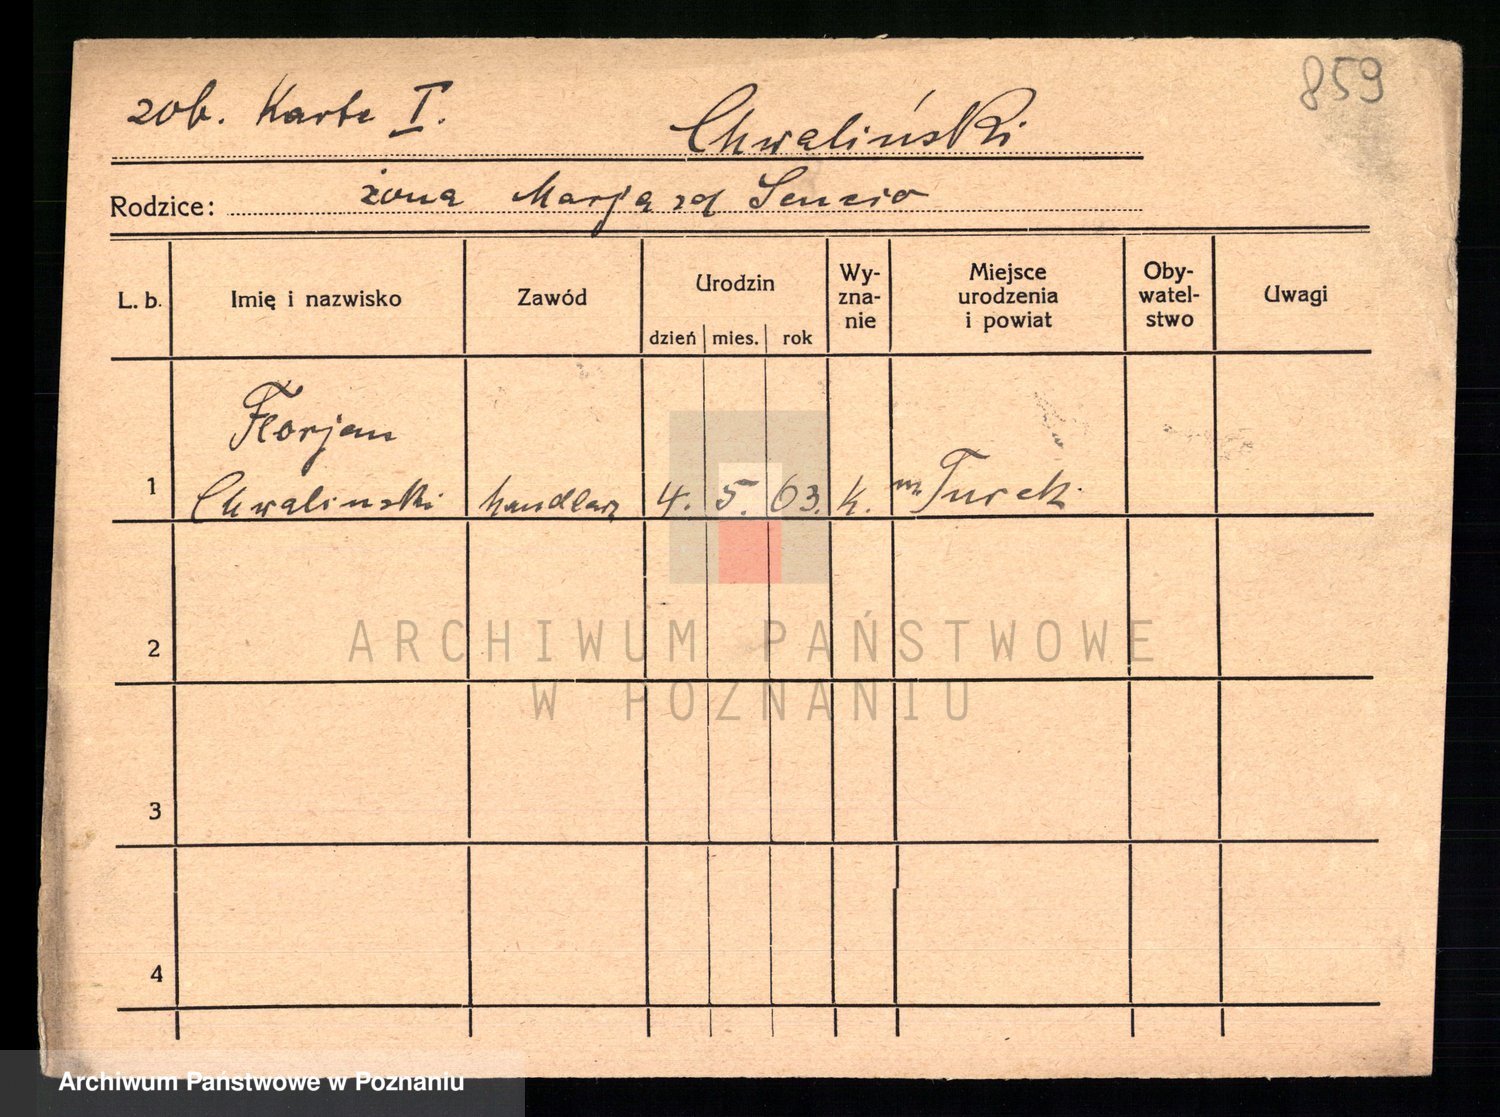 859
zob. Karte I.
Chwaliński
Rodzice: żona Marja zd
L. b. Imię i nazwisko Zawód Urodzin Wy-zna-nie Miejsce urodzenia i powiat Oby-watel-stwo Uwagi
dzień mies. rok
Florjan
1 Chwalinski handlarz 4. 5. 63. k. m. Turek.
2
3
4
ARCHIWUM PAŃSTWOWE
W POZNANIU
Archiwum Państwowe w Poznaniu